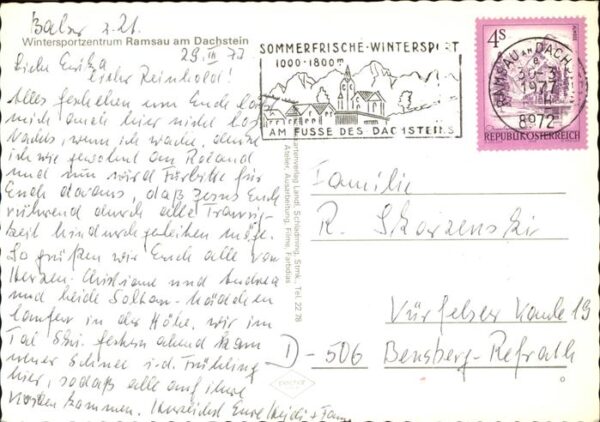 Wintersportzentrum Ramsau am Dachstein
29. III 77
Liebe Erika
lieber Reinhold!
Alles Geschehen um Euch läßt
mich auch hier nicht los
Nachts, wenn ich wache, denke
ich wie gewohnt an Roland
und nun wird Fürbitte für
Euch daraus, daß Jesus Euch
rührend durch alle Traurig-
keit hindurchgeleiten möge.
So grüßen wir Euch alle von
Herzen. Christiane und Andrea
und beide Soltau-Mädchen
laufen in der Höhe, wir im
Tal Ski. Gestern abend kam
neuer Schnee i. d. Frühling
hier, sodaß alle auf ihre
Kosten kommen. Herzlichst Eure Heidi + Fam.
SOMMERFRISCHE · WINTERSPORT
1000 - 1800 m
AM FUSSE DES DACHSTEINS
RAMSAU AM DACHSTEIN
30.-3.
1977
8972
4S
REPUBLIK ÖSTERREICH
Kartenverlag Landl, Schladming, Stmk., Tel. 22 78
Atelier, Ausarbeitung, Filme, Farbdias
Familie
R. Skorzenski
Vürfelser Kaule 19
D-506 Bensberg-Refrath